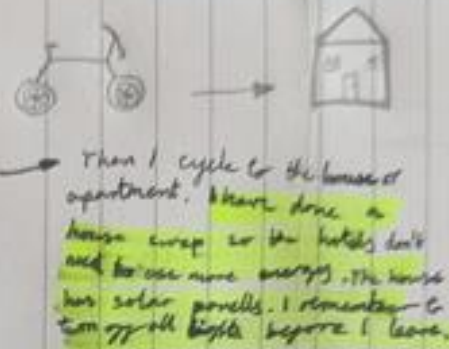 Than I cycle to the house or
apartment. I have done a
house swap so the hotels don't
need to use more energy. The house
has solar panells. I remember to
turn off all lights before I leave.